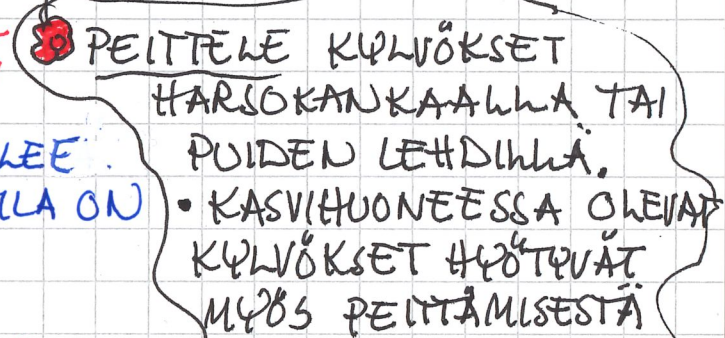 PEITTELE KYLVÖKSET
HARSOKANKAALLA TAI
LEE. PUIDEN LEHDILLÄ.
LLA ON • KASVIHUONEESSA OLEVAT
KYLVÖKSET HYÖTYVÄT
MYÖS PEITTÄMISESTÄ